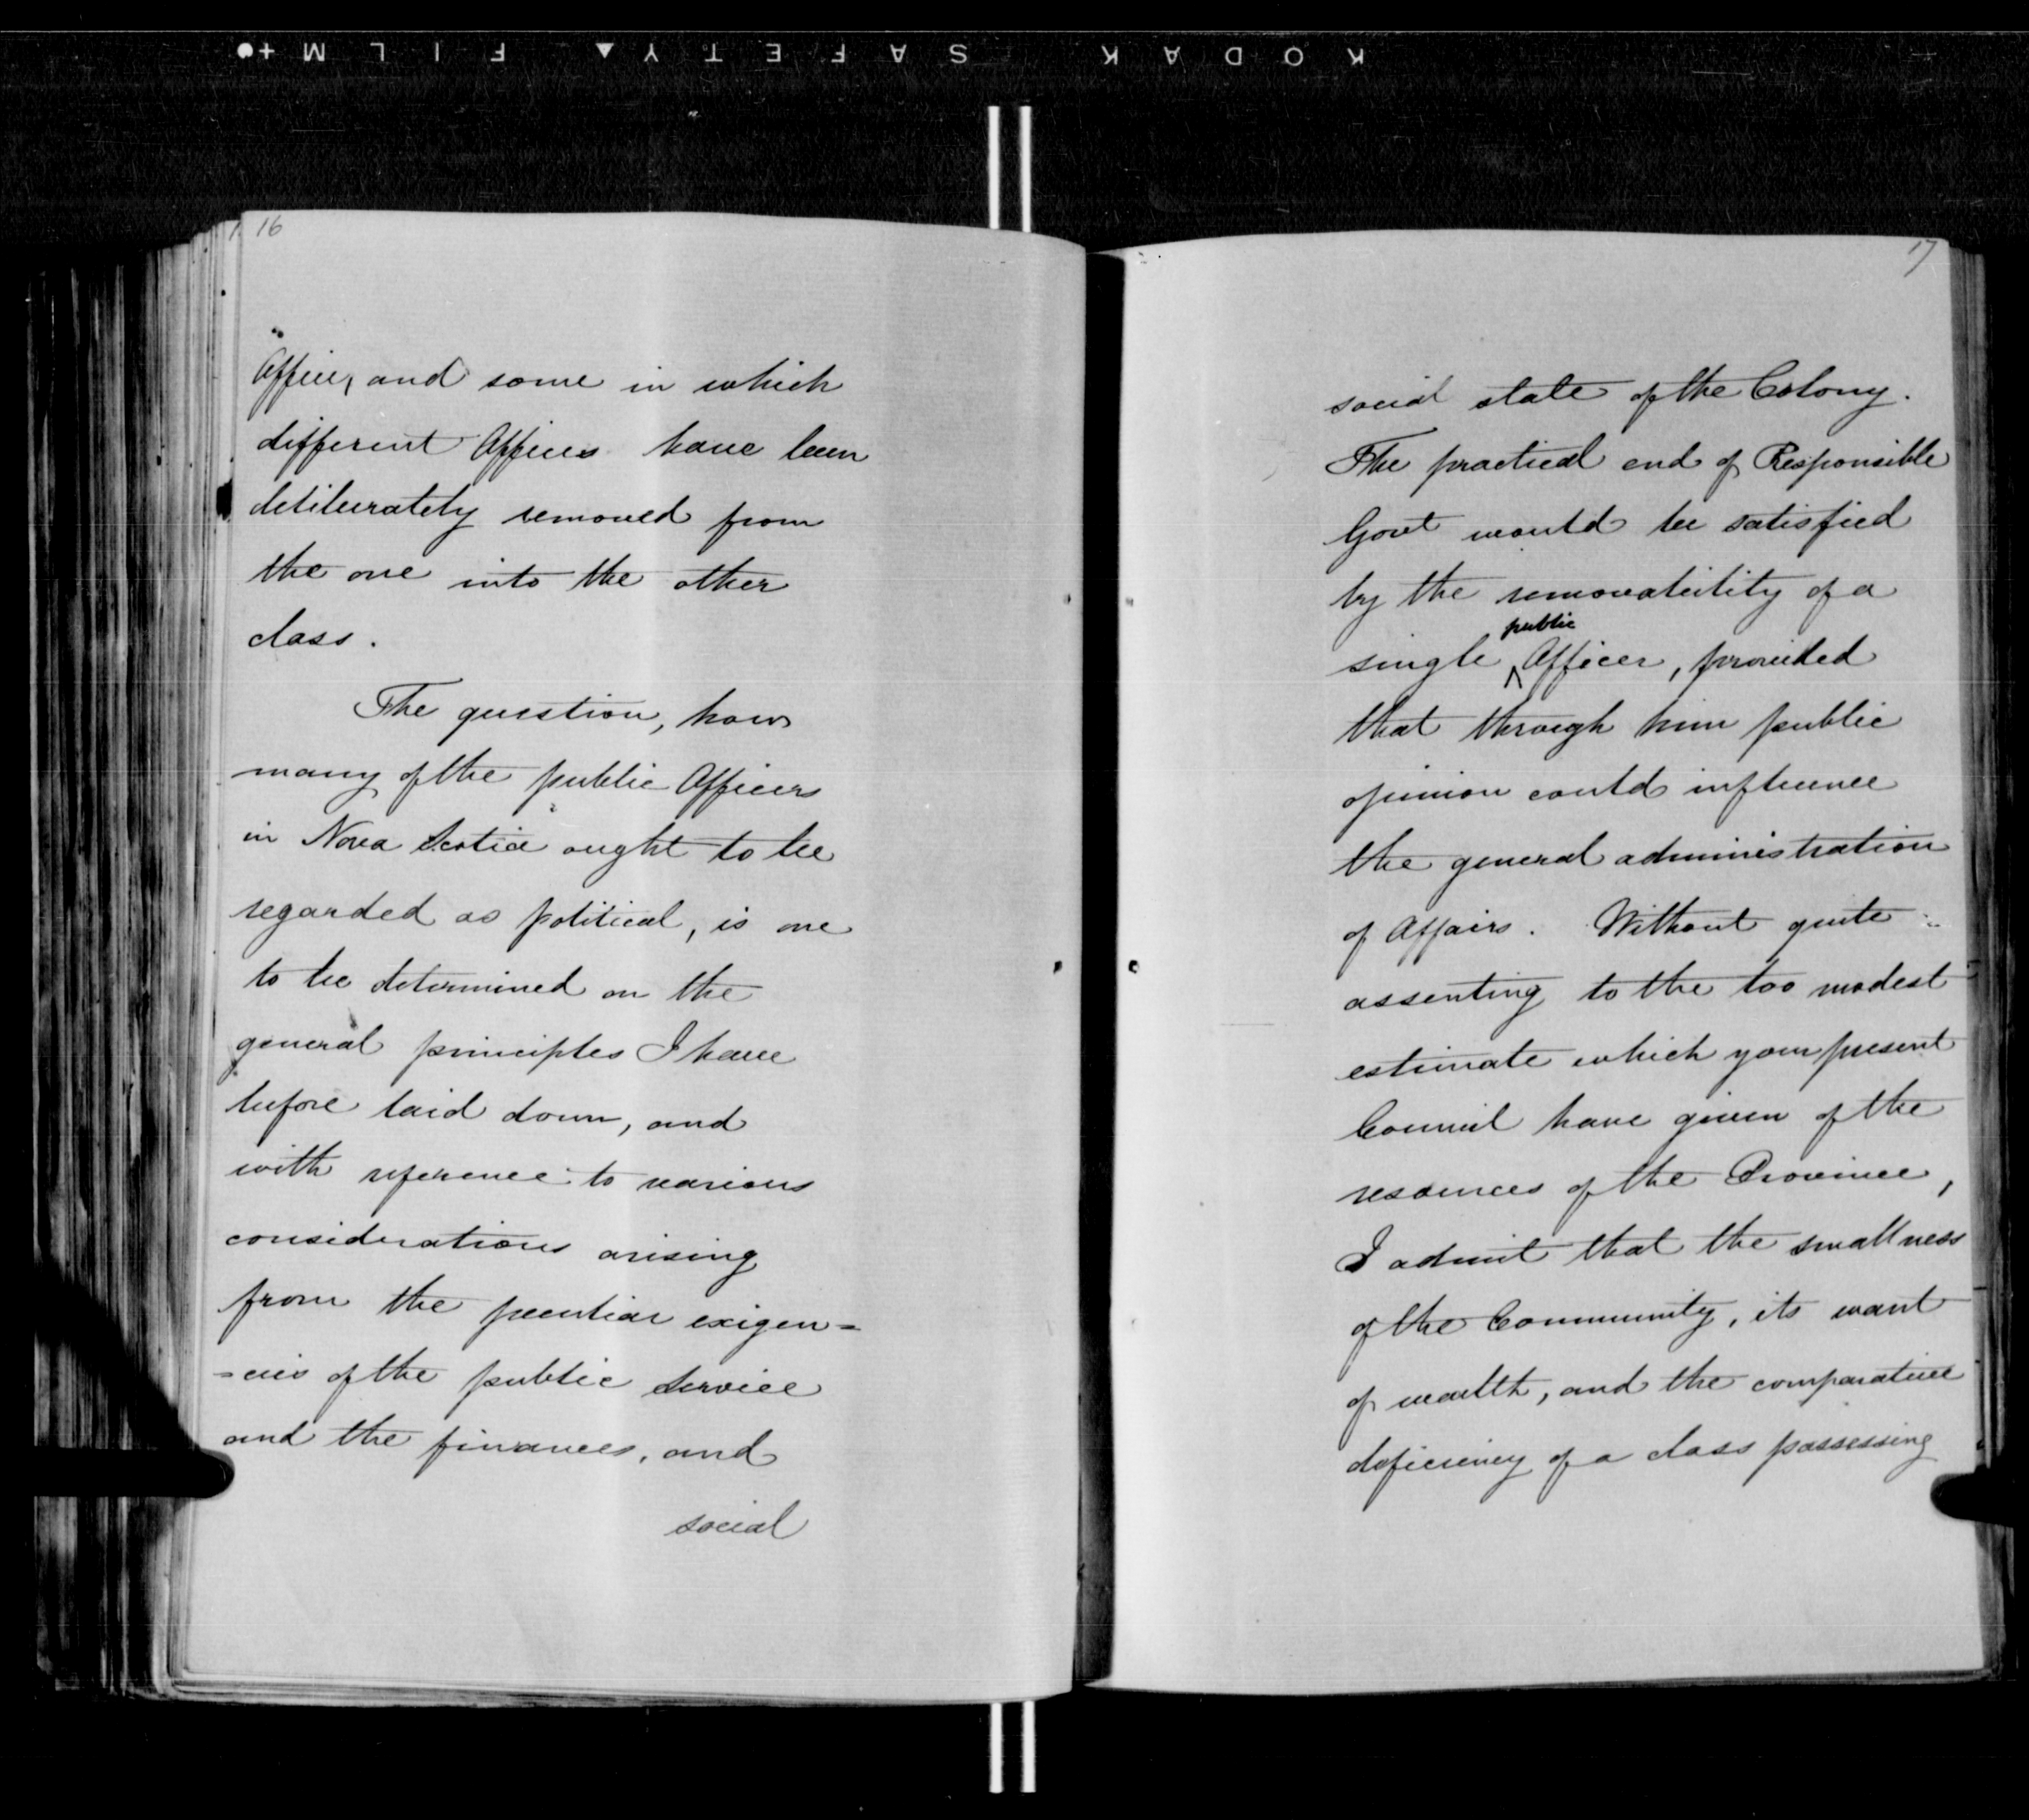 KODAK SAFETY FILM
16
Office, and some in which
different Offices have been
deliberately removed from
the one into the other
class.
The question, how
many of the public Officers
in Nova Scotia ought to be
regarded as political, is one
to be determined on the
general principles I have
before laid down, and
with reference to various
considerations arising
from the peculiar exigen=
=cies of the public Service
and the finances, and
social
17
social state of the Colony.
The practical end of Responsible
Govt would be satisfied
by the removability of a
public
single Officer, provided
that through him public
opinion could influence
the general administration
of Affairs. Without quite
assenting to the too modest
estimate which your present
Council have given of the
resources of the Province,
I admit that the smallness
of the Community, its want
of wealth, and the comparative
deficiency of a class possessing